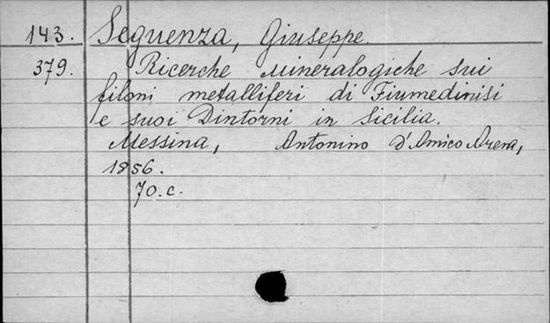 143. Seguenza, Giuseppe.
379. Ricerche mineralogiche sui
filoni metalliferi di Fiumedinisi
e suoi Dintorni in Sicilia.
Messina, Antonino d'Amico Arena,
1856.
70.c.